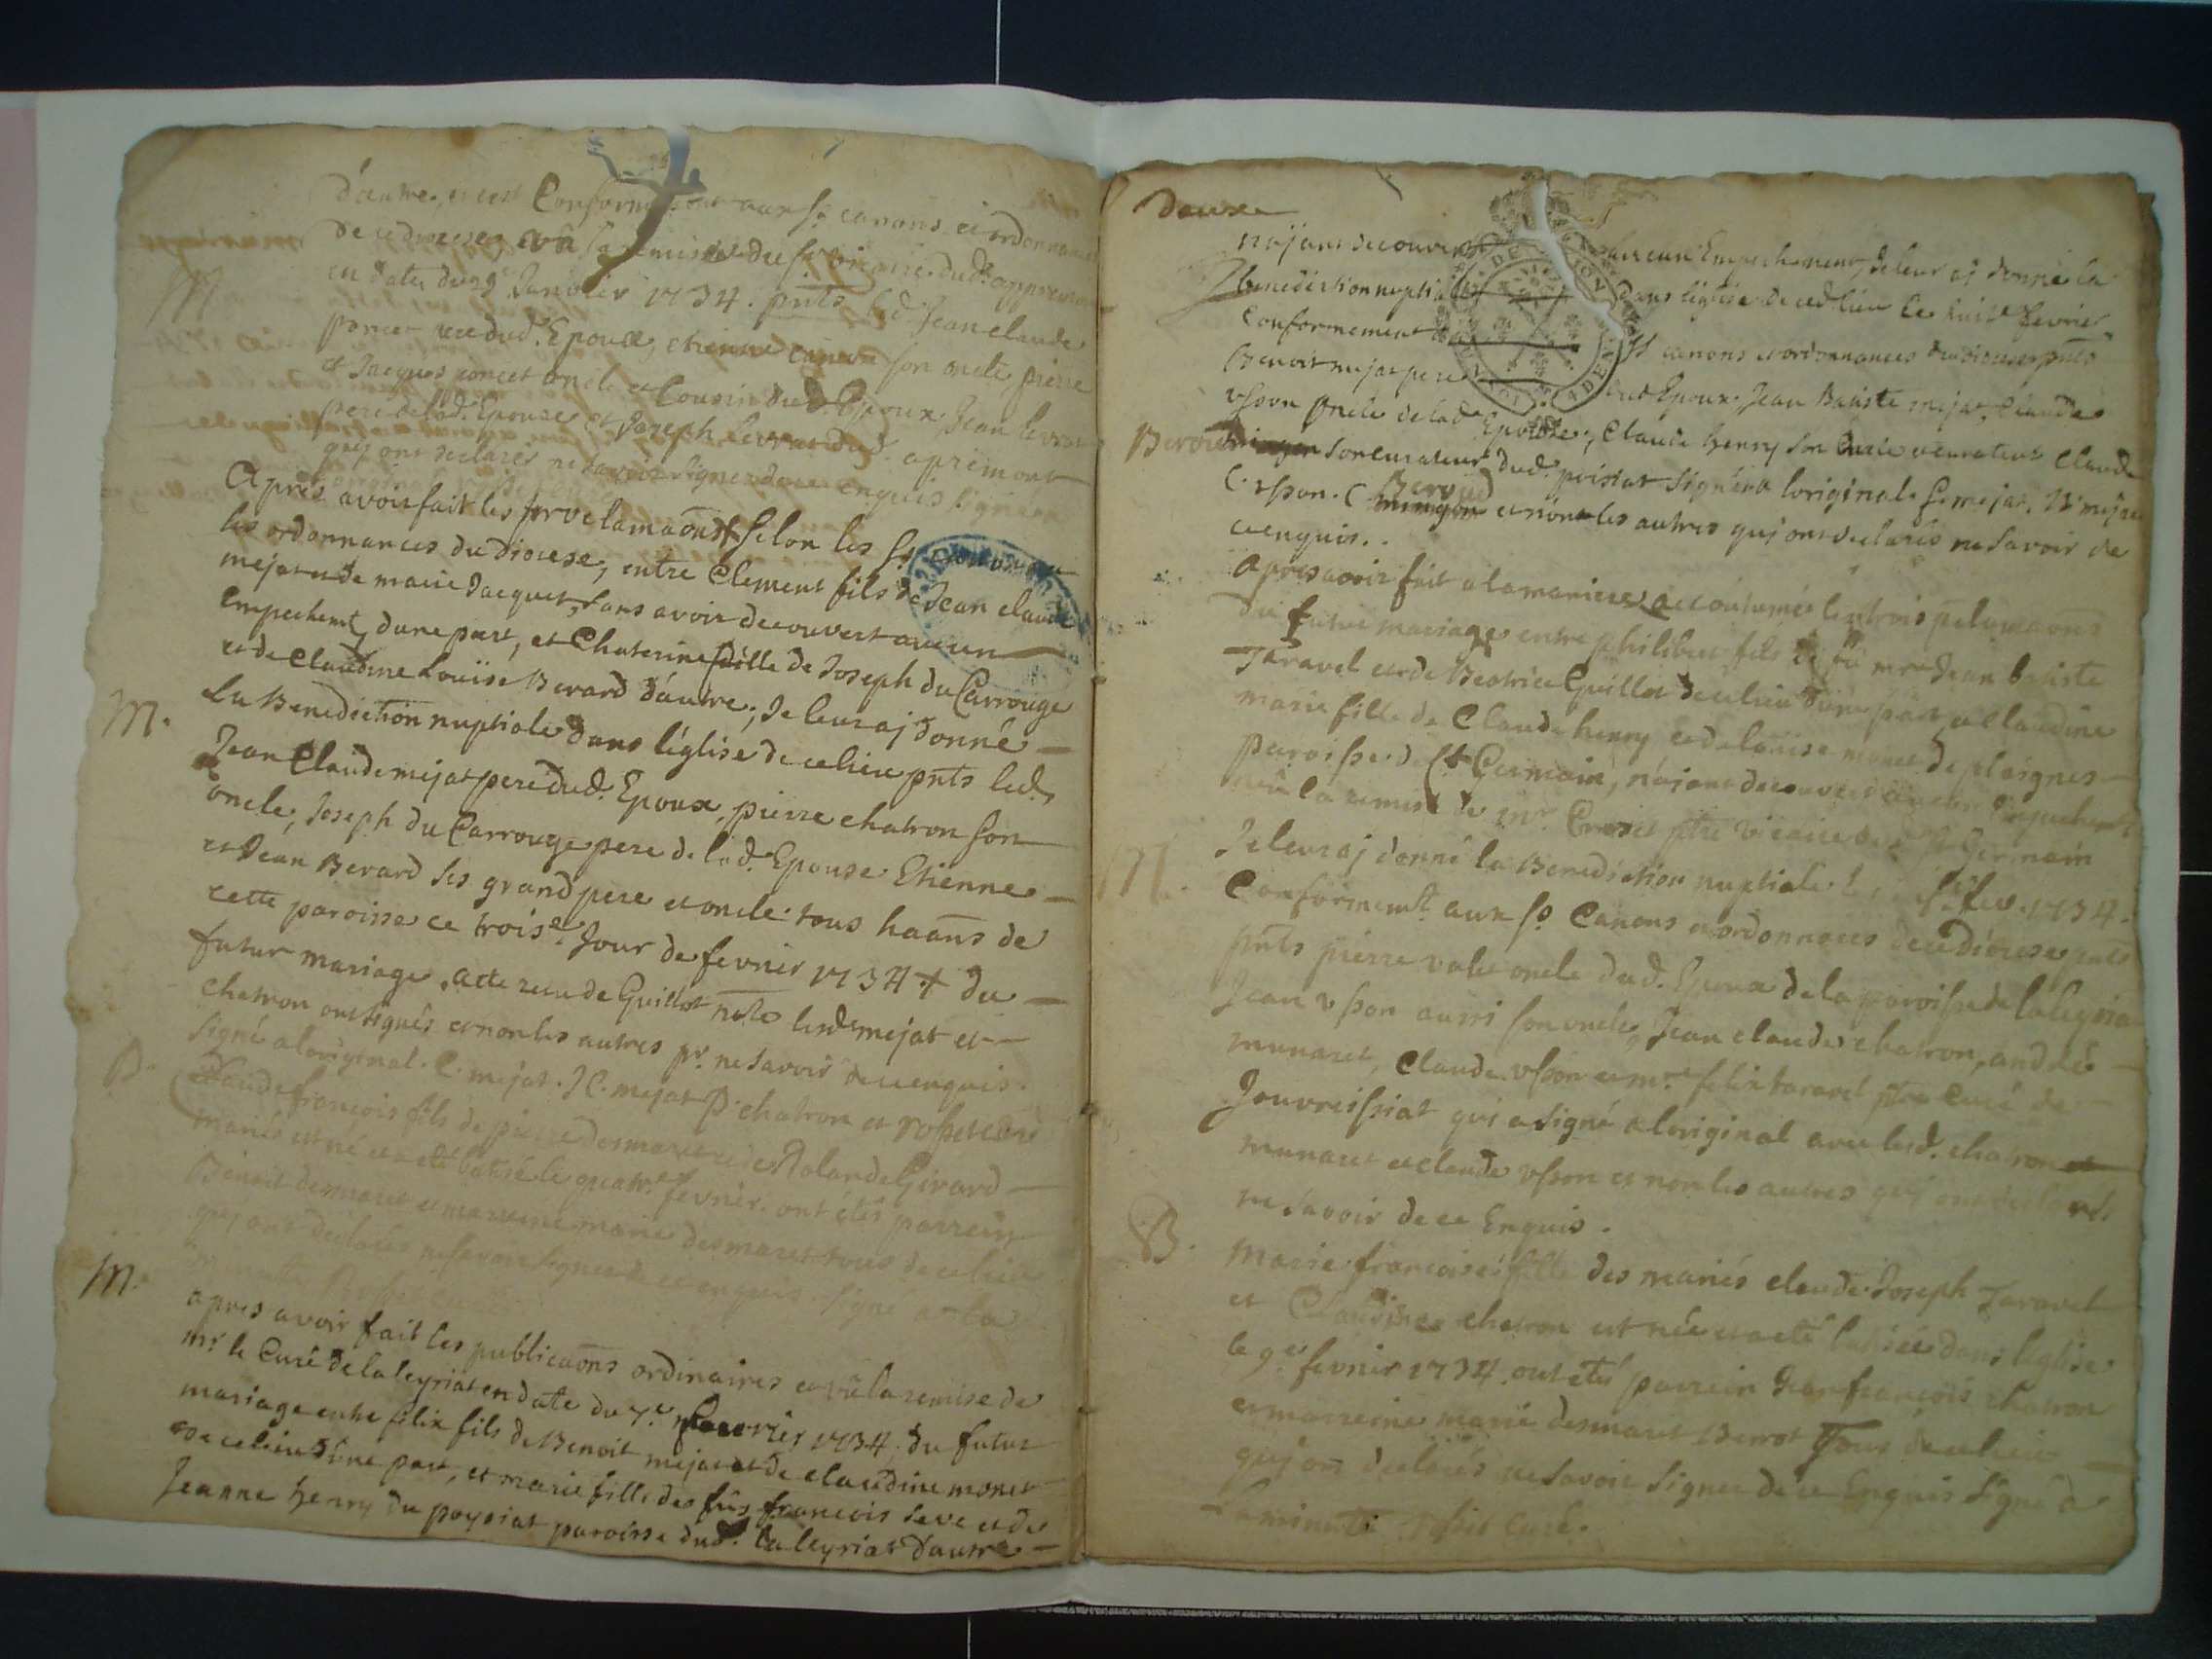 d'autre, et ce Conformement aux Ss canons et ordonnances
de ce diocese, vû la remise du Sr vicaire dud. appremont
en date du 29e Janvier 1734. pnts led. Jean claude
poncet dud. Epoux, etienne son oncle, pierre
et Jacques poncet oncle et Cousin dud. Epoux Jean levrat
pere de lad. Epouse et Joseph levrat dud. apremont
quj ont declarés ne savoir signer de ce enquis signé
M
Après avoir fait les proclamaons selon les Ss
les ordonnances du Diocese, entre Clement fils de Jean claude
mejat et de marie Jacquet, sans avoir decouvert aucun
empechemt, dune part, et Chaterine fille de Joseph du Carrouge
et de Claudine Louïse Berard d'autre; Je leur aj donné
M.
La Benediction nuptiale dans l'église de ce lieu pnts led.
Jean Claude mejat pere dud. Epoux, pierre chatron son
oncle, Joseph du Carrouge pere de lad. Epouse Etienne
et Jean Berard ses grand pere et oncle tous haans de
cette paroisse ce trois.e Jour de fevrier 1734 + du
futur mariage, acte reçu de Guillot nore lesd. mejat et
chatron ont signés et non les autres pr. ne savoir de ce enquis.
signé a loriginal. C. mejat. J C. mejat P. chatron et rosset curé
B.
Claude françois fils de pierre desmaret et de Rolande Girard
mariés est né et a eté batisé le quatr.e fevrier. ont étés parrein
Benoit desmaret et marreine marie desmaret tous de ce lieu
quj ont declarés ne savoir signer de ce enquis. signé a la
minute Rosset curé
M.
apres avoir fait les publicaons ordinaires et vû la remise de
mr le Curé de laleyriat en date du 7.e fevrier 1734, du futur
mariage entre felix fils de Benoit mejat et de claudine monet
de ce lieu d'une part, et marie fille des fûs françois seve et de
Jeanne henry du poysiat paroisse dud. laleyriat d'autre
Deuxe
n'ajant decouvert aucun Empechement, Je leur aj donné la
benediction nuptiale dans l'église de ced. lieu ce huit.e fevrier
Conformement aux Ss canons et ordonnances du diocese pnts
Benoit mejat pere dud Epoux, Jean Batiste mejat, Claude
vsson oncle de lad. Epouse, Claude henry son Curateur Claude
Beroud son curateur dud. poisiat signés a loriginal. f. mejat, B. mejat
C. vsson. C Beroud et non les autres quj ont declarés ne savoir de
ce enquis..
Apres avoir fait a la maniere accoutumée les trois pclamaons
du futur mariage entre philibert fils de fû mre Jean batiste
Taravel et de Beatrice Guillot de ce lieu d'une part, et Claudine
marie fille de Claude henry et de loüise monet de plaignes
paroisse de St Germain, n'ajant decouvert aucun Empechemt
vû la remise de mr. ptre vicaire de St Germain
M.
Je leur aj donné la Benediction nuptiale le fev. 1734.
Conformemt. aux Ss Canons et ordonnances de ce diocese pnts
pnts pierre oncle dud. Epoux de la paroisse de laleyriat
Jean vsson aussi son oncle, Jean claude chatron, andré
munaret, Claude vsson et mre felix taravel ptre Curé de
Jouvreissiat qui a signé a loriginal avec lesd. chatron et
munaret et claude vsson et non les autres quj ont declarés
ne savoir de ce Enquis.
B.
Marie françoise fille des mariés claude Joseph Taravel
et Claudine chatron est née et a eté batisée dans l'église
le 9.e fevrier 1734. ont étés parrein Jean françois chatron
et marreine marie desmaret Berrot Tous de ce lieu
quj on declarés ne savoir signer de ce Enquis signé a
la minute rosset curé.